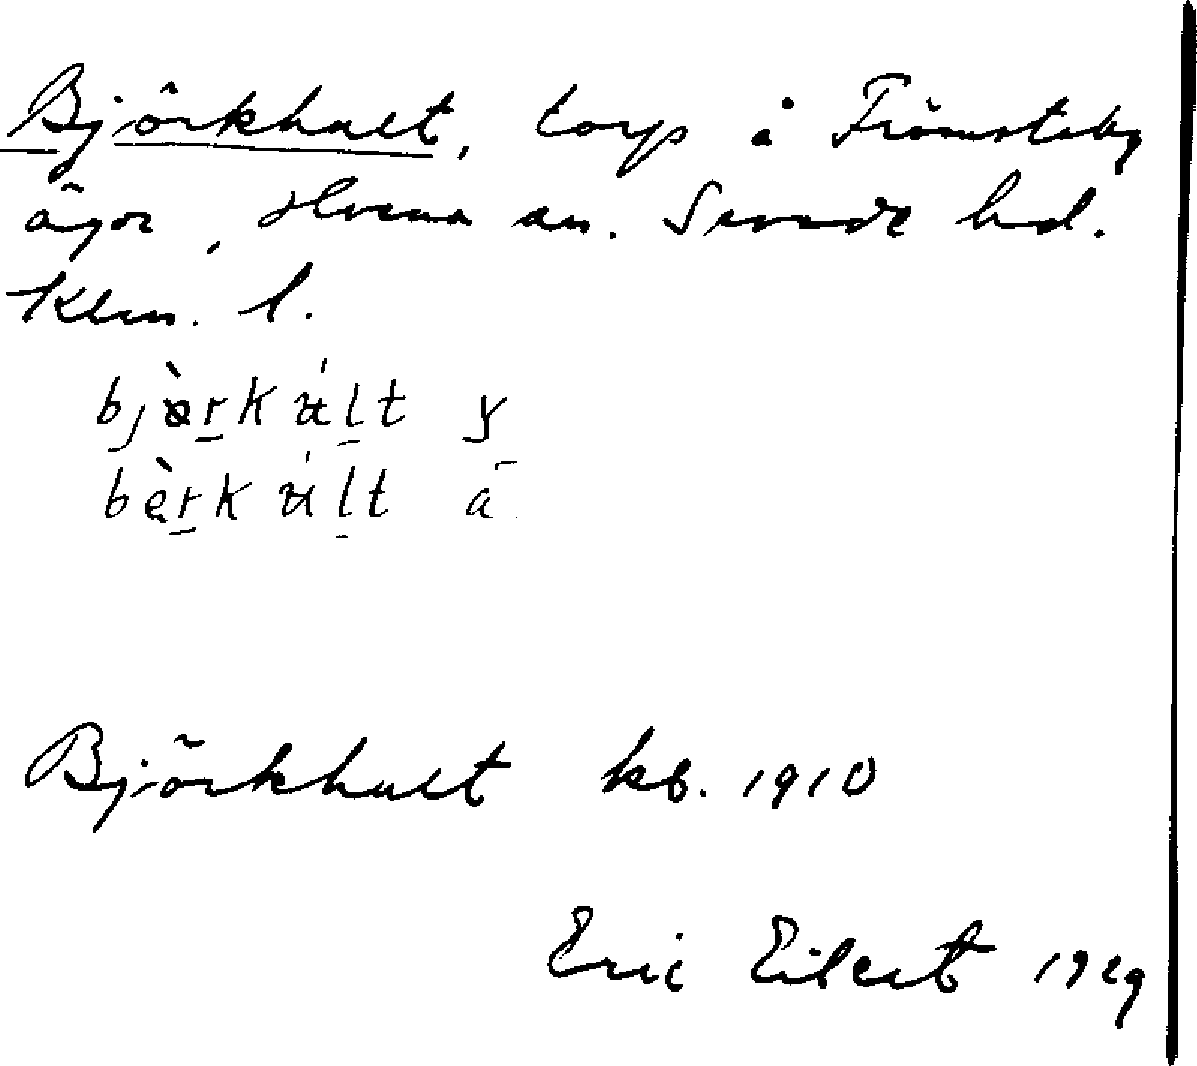 Björkhult, torp å Frömsteby
ägor, Hvena sn. Sevede hd.
Klm. l.
bjèrkúlt y
bèrkúlt ä
Björkhult kb. 1910
Eric Eilert 1929